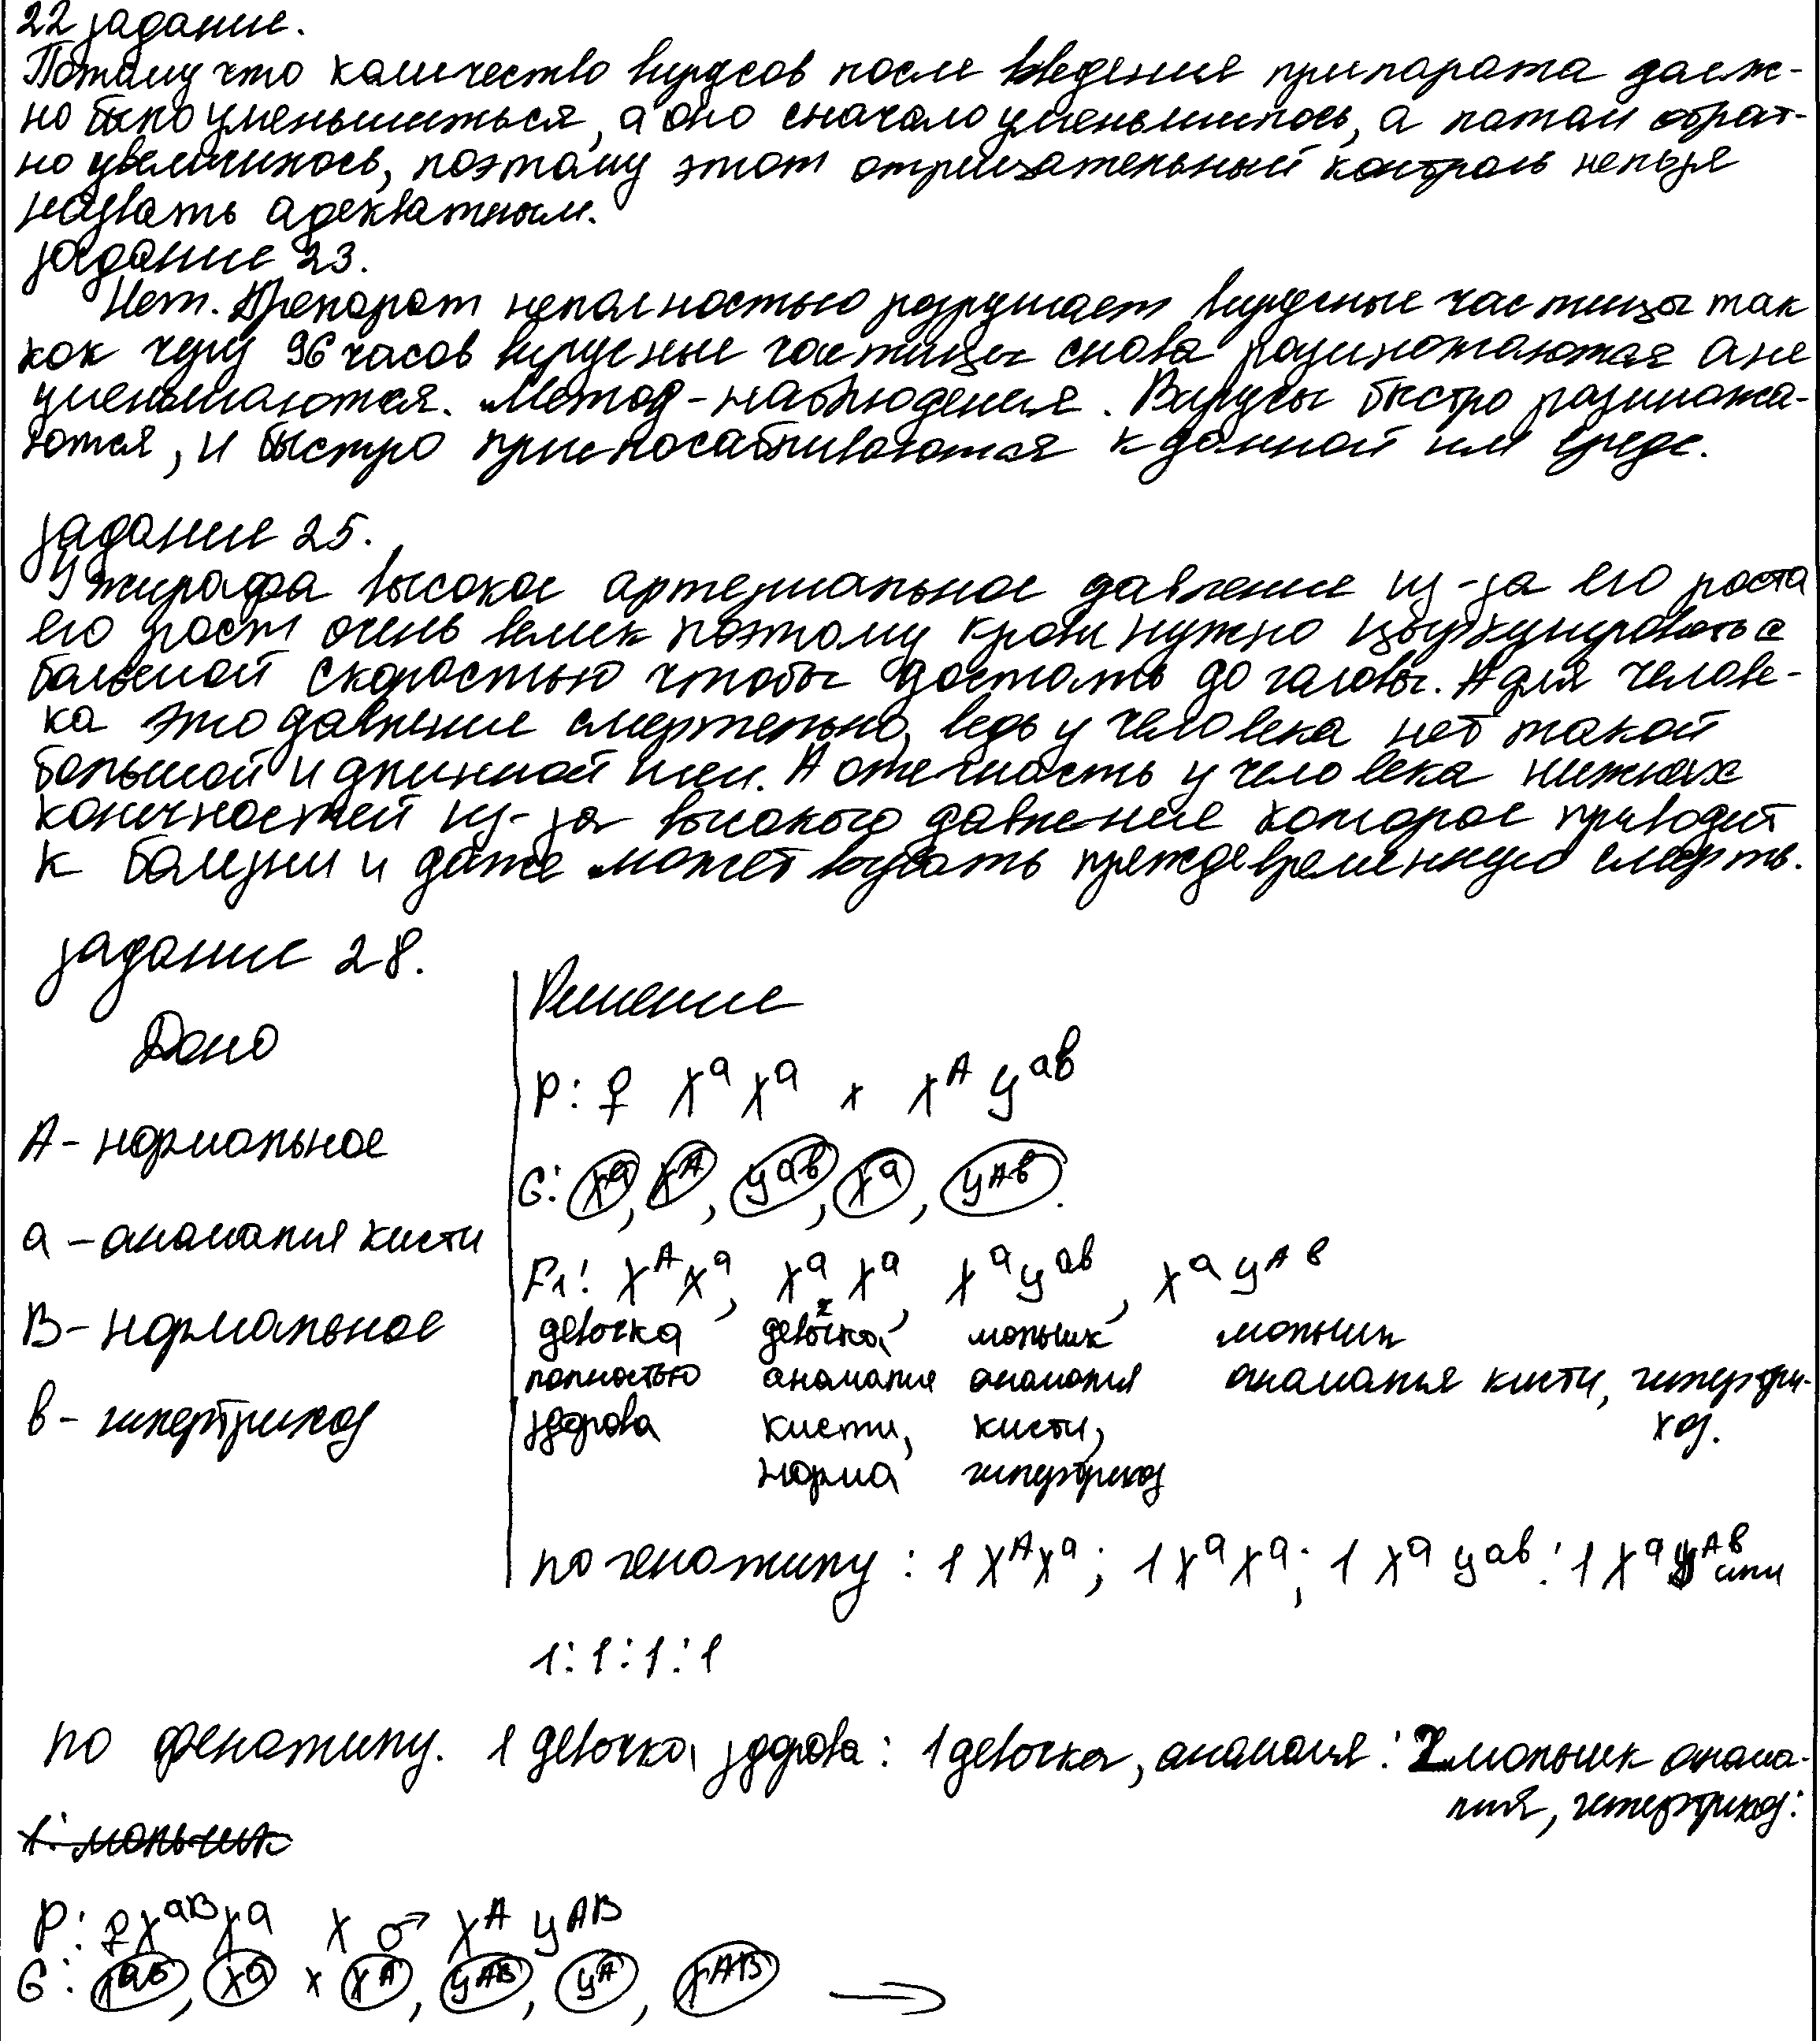 22 задание.
Потому что количество вирусов после введения припарата долж-
но было уменьшиться, а оно сначало уменьшилось, а потом обрат-
но увеличилось, поэтому этот отрицательный контроль нельзя
назвать адекватным.
задание 23.
Нет. Препарат неполностью разрушает вирусные частицы так
как через 96 часов вирусные частицы снова размножаются а не
уменьшаются. Метод - наблюдения. Вирусы быстро размножа-
ются, и быстро приспосабливаются к данной им среде.
задание 25.
У жирафа высокое артериальное давление из-за его роста
его рост очень велик поэтому крови нужно циркулировать с
большой скоростью чтобы достать до головы. А для челове-
ка это давление смертельно, ведь у человека нет такой
большой и длинной шеи. А отечность у человека нижних
конечностей из-за высокого давления которое приводит
к болезни и даже может вызвать преждевременную смерть.
задание 28.
Дано
Решение
P: ♀ X^a X^a x X^A y^ab
A - нормальное
G: X^a, X^A, y^ab, X^a, y^Ab.
a - аномалия кисти
F1: X^A X^a, X^a X^a, X^a y^ab, X^a y^Ab
B - нормальное
девочка девочка мальчик мальчик
полностью аномалия аномалия аномалия кисти, гипертри-
в - гипертрихоз
здорова кисти, кисти, хоз.
норма гипертрихоз
по генотипу: 1 X^A X^a; 1 X^a X^a; 1 X^a y^ab : 1 X^a y^Ab или
1:1:1:1
по фенотипу. 1 девочка, здорова: 1 девочка, аномалия: 2 мальчик анома-
лия, гипертрихоз:
1: мальчик
P: ♀ X^aB X^a x ♂ X^A y^AB
G: X^aB, X^a x X^A, y^AB, y^A, X^AB →